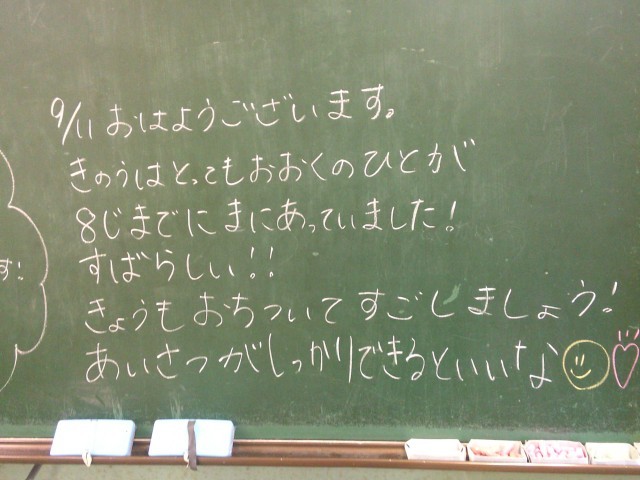 9/11 おはようございます。
きのうはとってもおおくのひとが
8じまでにまにあっていました!
すばらしい!!
きょうもおちついてすごしましょう!
あいさつがしっかりできるといいな
す!